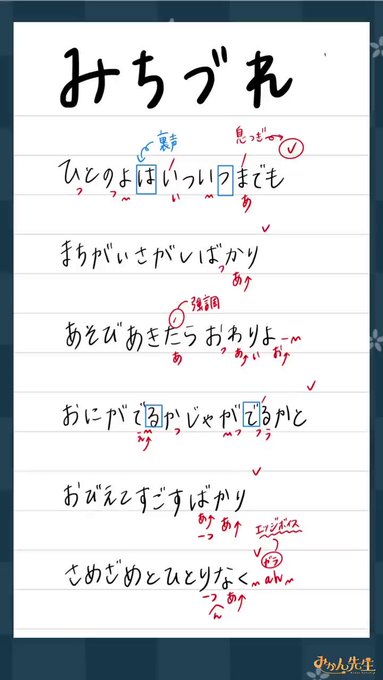 みちづれ
裏声
息つぎ→✓
ひとのよはいついつまでも
っ っ ～ い ～ あ
✓
まちがいさがしばかり
っ あ↑
強調
あそびあきたらおわりよ
あ っ あ↑ い お↑ ー～
✓
おにがでるかじゃがでるかと
え～↑ っ ～っ っ う
✓
おびえてすごすばかり
あ↑ あ↑
ーっ
エッジボイス
✓ ガラ
さめざめとひとりなく～ah～
ーっ あ↑
ん
みかん先生